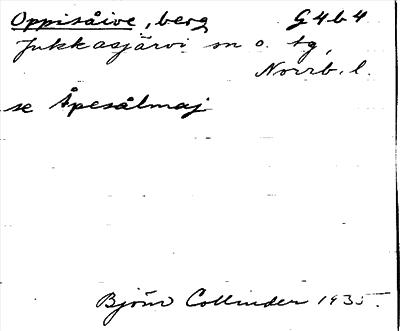 Oppisåive, berg G4b4
Jukkasjärvi sn o. tg,
Norrb. l.
se Åpesålmaj
Björn Collinder 1935.